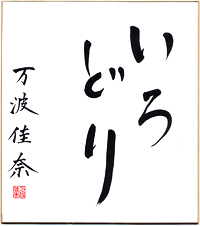 いろ
どり
万波佳奈